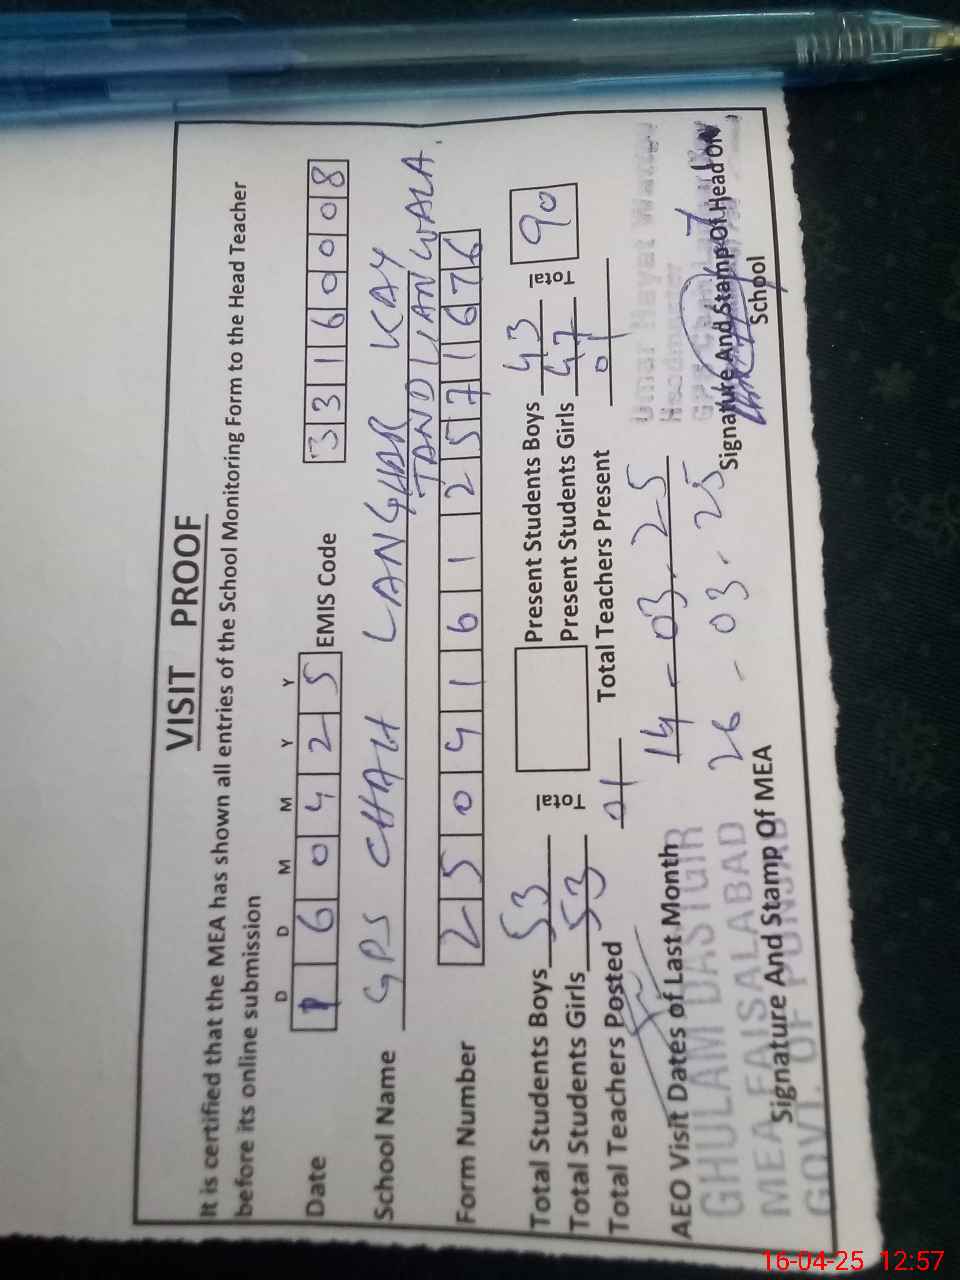 VISIT PROOF
It is certified that the MEA has shown all entries of the School Monitoring Form to the Head Teacher
before its online submission
D D M M Y Y
Date 1 6 0 4 2 5 EMIS Code 3 3 1 6 0 0 0 8
School Name GPS CHAH LANGHAR KAY
TANDLIANWALA.
Form Number 2 5 0 4 1 6 1 2 5 7 1 6 7 6
Total Students Boys 53 Total Present Students Boys 43 Total 90
Total Students Girls 53 Present Students Girls 47
Total Teachers Posted 01 Total Teachers Present 01
AEO Visit Dates of Last Month 14 - 03. 25
26 - 03. 25
GHULAM DASTGIR
MEA FAISALABAD
GOVT. OF PUNJAB
Signature And Stamp Of MEA
Umar Hayat
Headmaster
Signature And Stamp Of Head
School
16-04-25 12:57